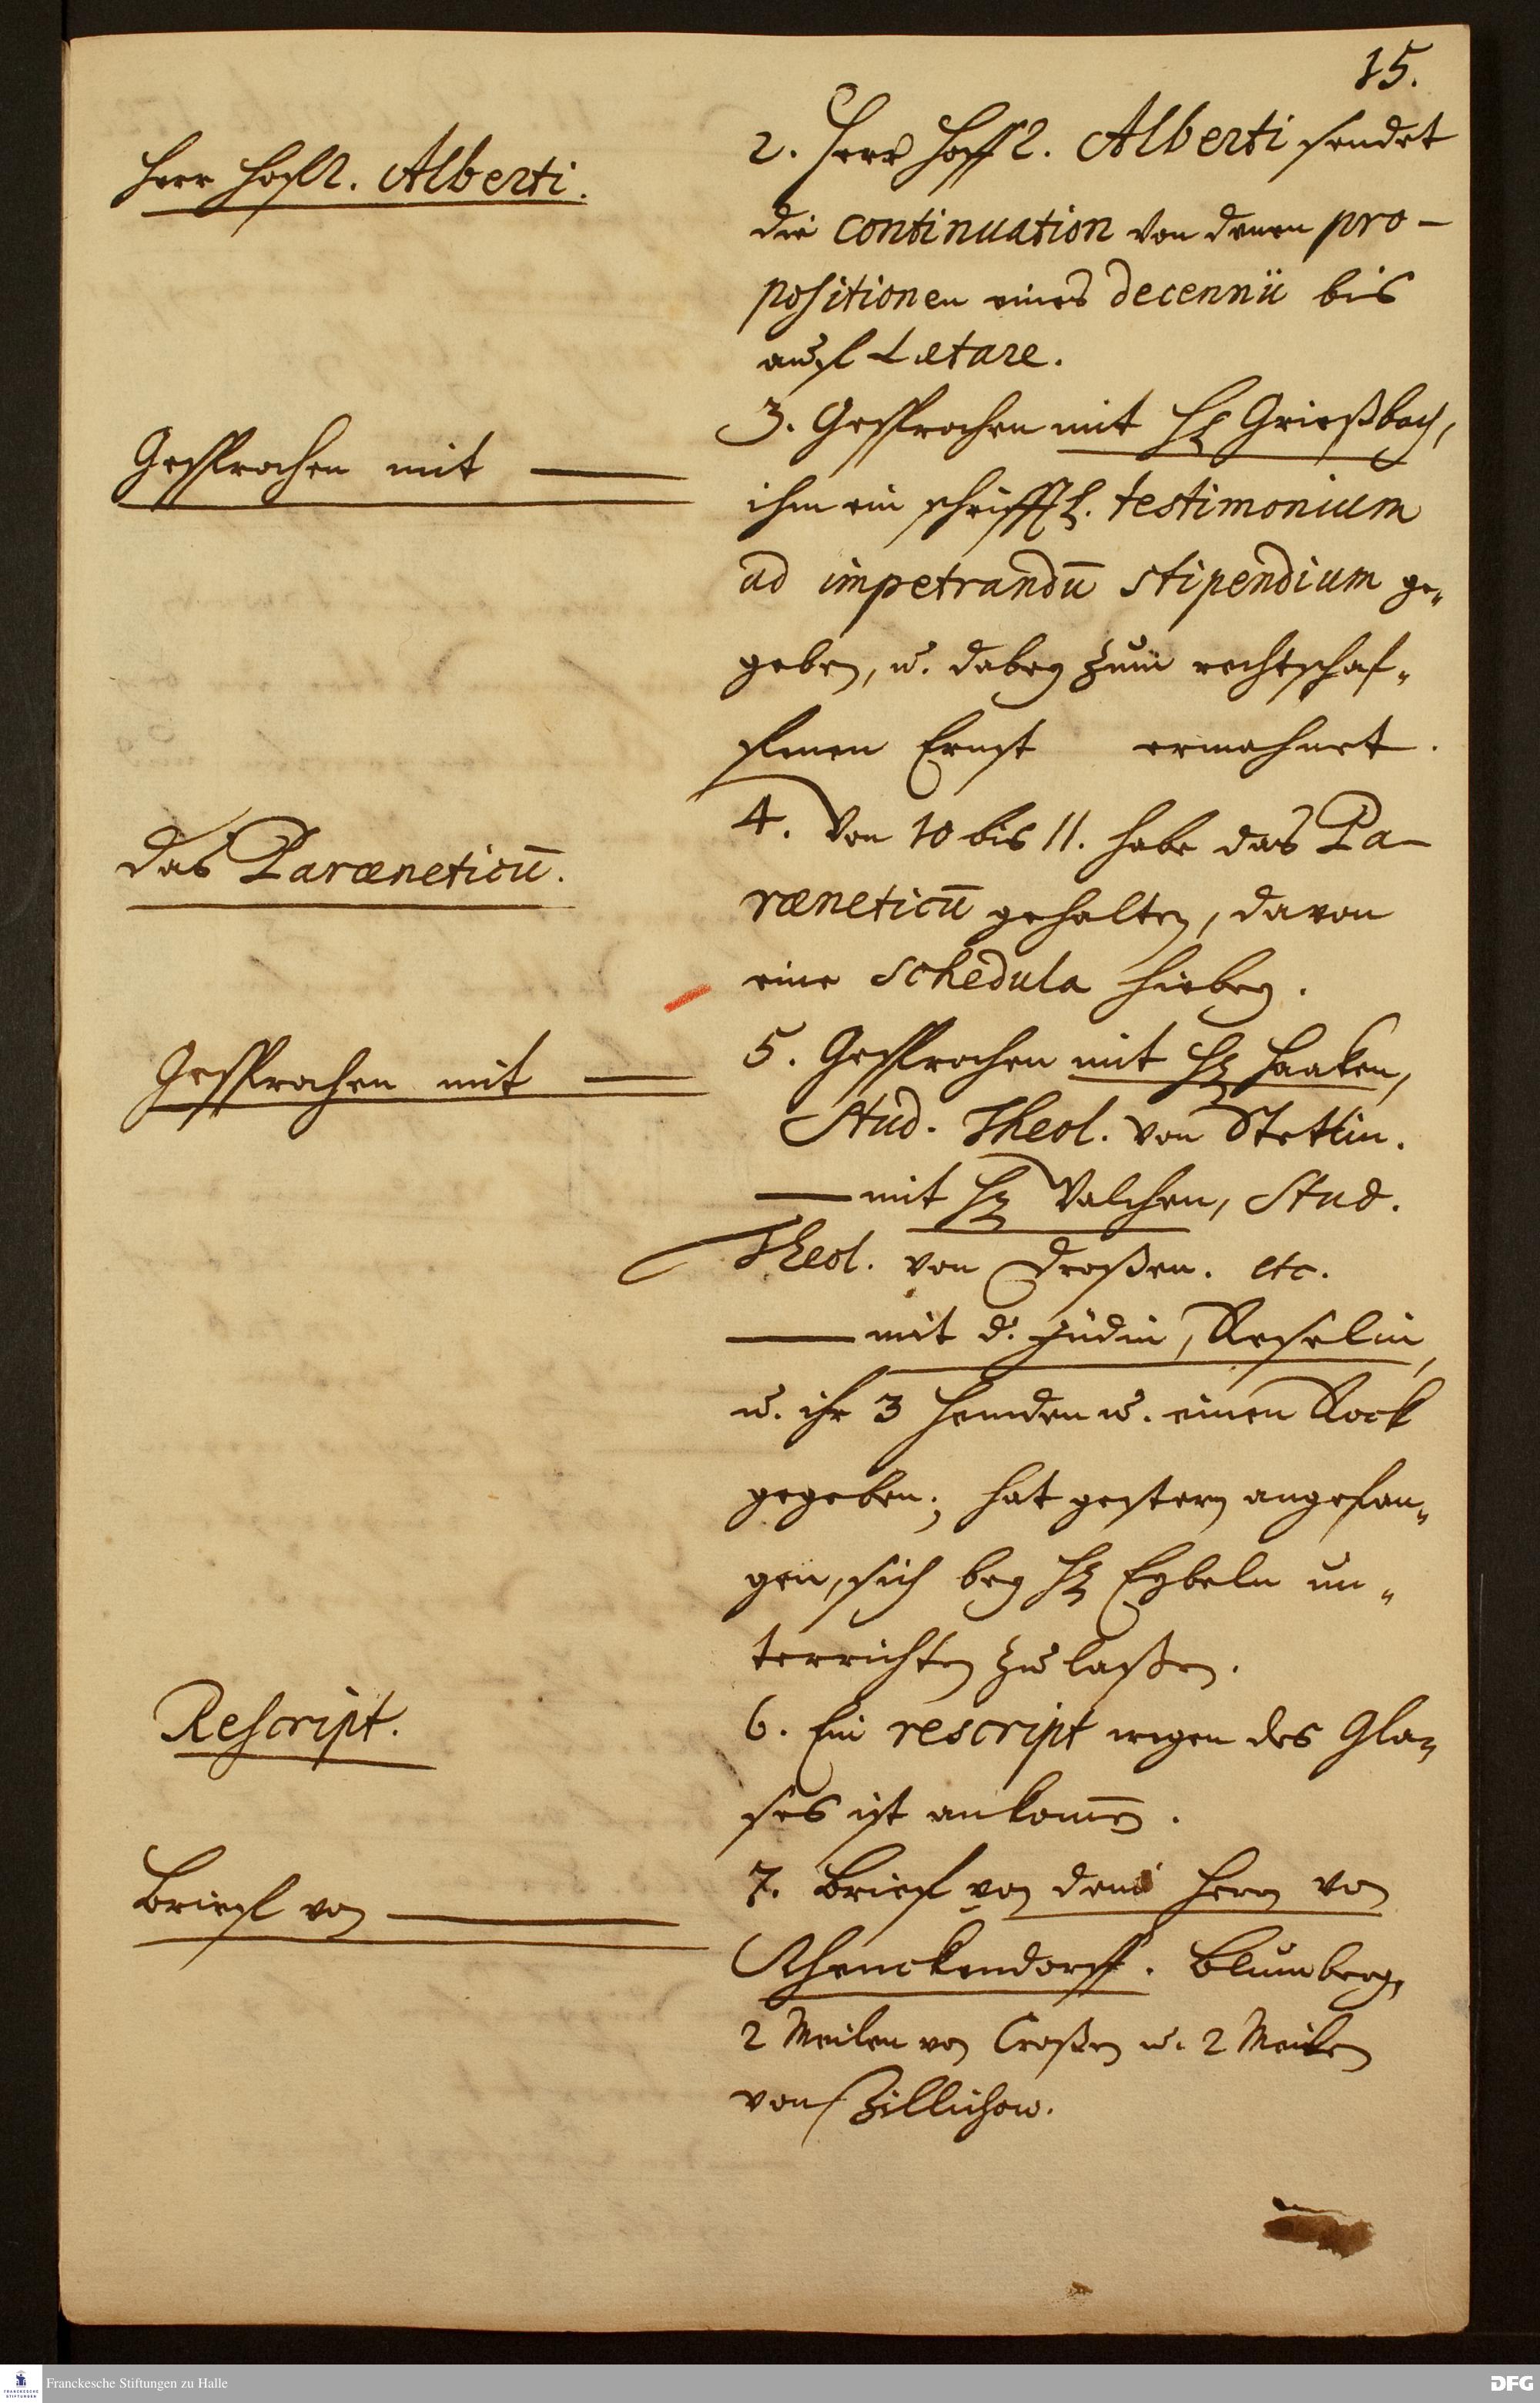 15.
Herr Hoff R. Alberti.
2. Herr Hoff R. Alberti sendet
die continuation von denen pro-
positionen eines decennii bis
auff Lætare.
Gesprochen mit —
3. Gesprochen mit H. Grießbach,
ihm ein schrifftl. testimonium
ad impetrandū stipendium ge-
geben, u. dabey zum rechtschaf-
fenen Ernst ermahnet.
das Paræneticū.
4. Von 10 bis 11. habe das Pa-
ræneticū gehalten, davon
eine schedula hiebey.
Gesprochen mit —
5. Gesprochen mit H. Haaken,
Stud. Theol. von Stettin.
— mit H. Valchen, Stud.
Theol. von Droßen. etc.
— mit d. Jüdin, Reselin,
u. ihr 3 Hemden u. einen Rock
gegeben; hat gestern angefan-
gen, sich bey H. Eybeln un-
terrichten zu laßen.
Rescript.
6. Ein rescript wegen des Gla-
ses ist ankom̄en.
Brieff von —
7. Brieff von dem Herrn von
Schenckendorff. Blumberg,
2 Meilen von Croßen u. 2 Meilen
von Züllichow.
Franckesche Stiftungen zu Halle
DFG